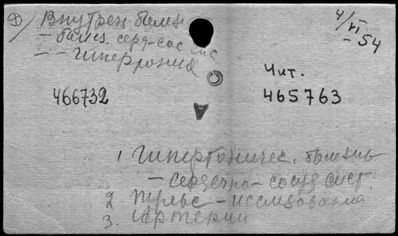 Ф) Внутрен. болезни
4/VI – 54
– болез. серд–сос сис
– – гипертония
Чит.
466732
465763
1 Гипертоничес. болезнь
– сердечно–сосуд сист.
2 Пульс – исследования
3. Артерии